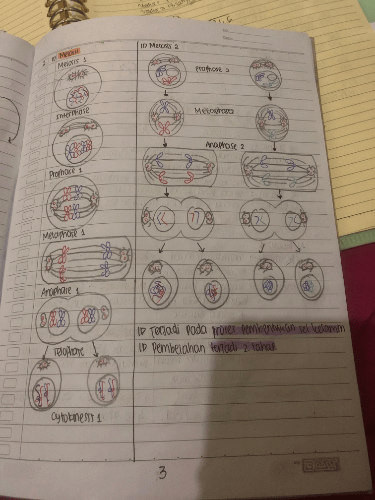 1) Meiosis
Meiosis 1
Interphase
Prophase 1
Metaphase 1
Anaphase 1
Telophase
Cytokinesis 1
1) Meiosis 2
Prophase 2
Metaphase 2
Anaphase 2
1) Terjadi pada proses pembentukan sel kelamin
1) Pembelahan terjadi 2 tahap
3